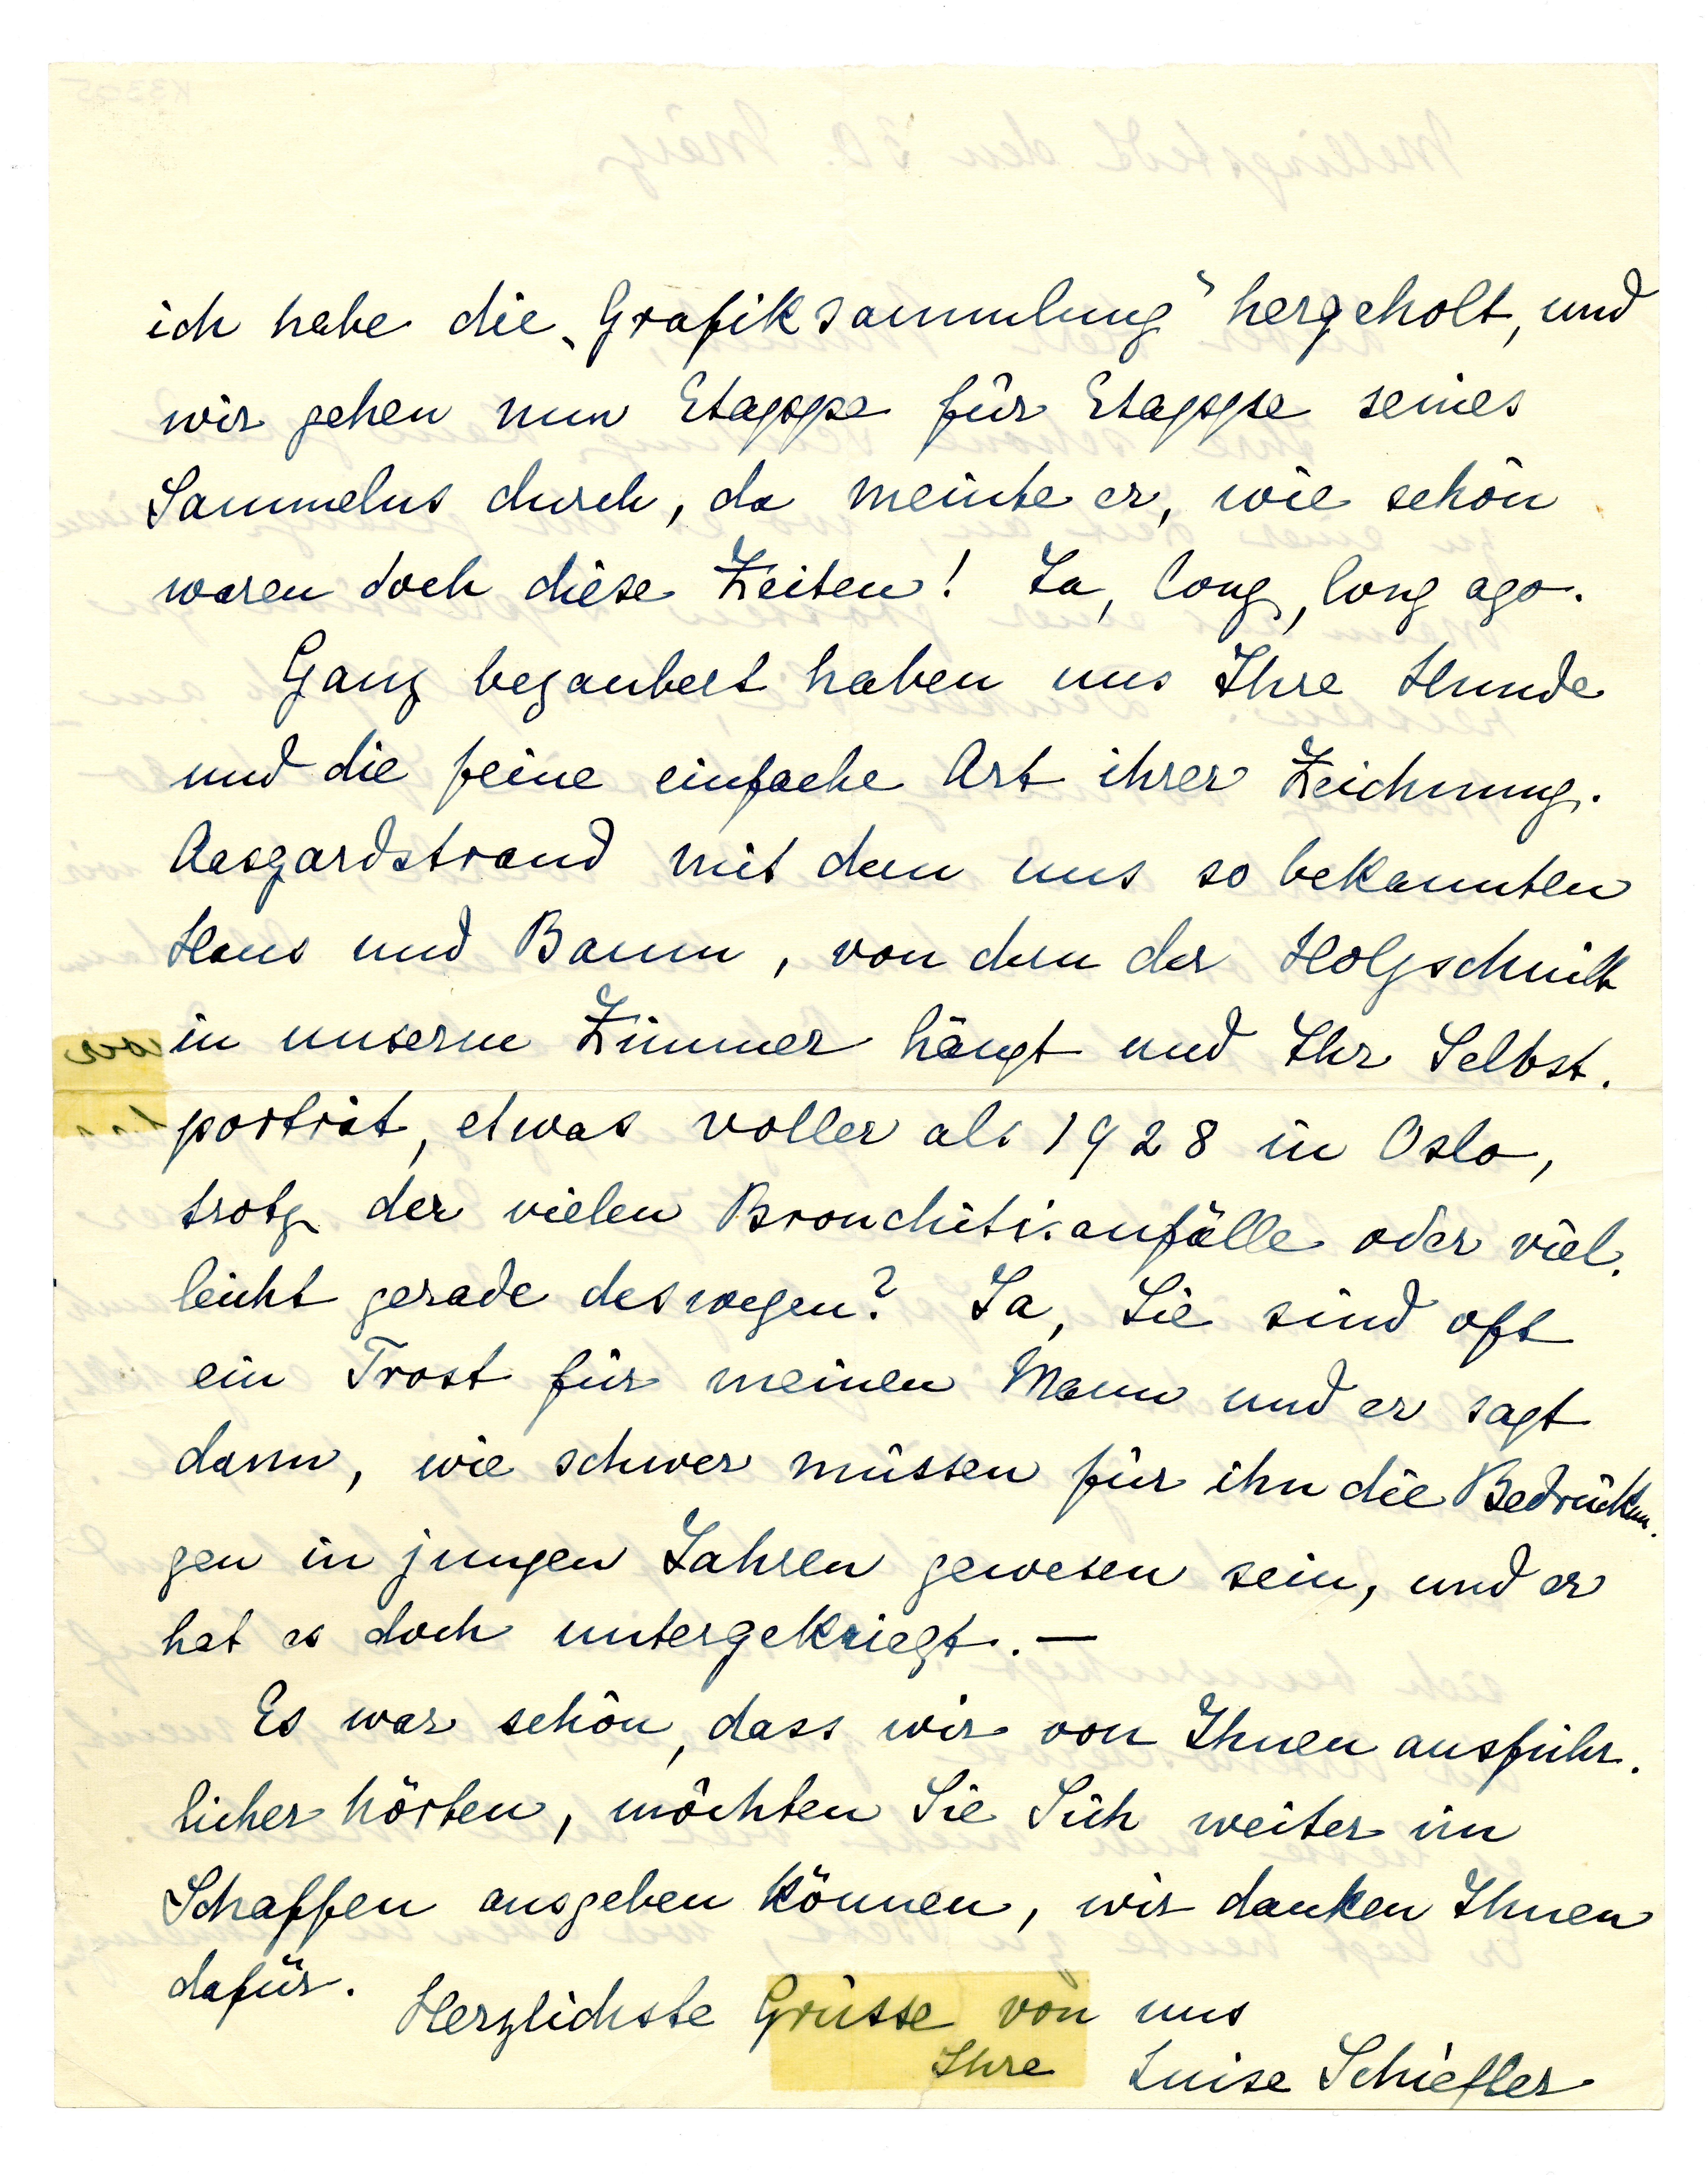 ich habe die „Grafiksammlung" hergeholt, und
wir gehen nun Etappe für Etappe seines
Sammelns durch, da meinte er, wie schön
waren doch diese Zeiten! Ja, long, long ago.
Ganz bezaubert haben uns Ihre Hunde
und die feine einfache Art ihrer Zeichnung.
Aasgardstrand mit dem uns so bekannten
Haus und Baum, von dem der Holzschnitt
in unserm Zimmer hängt und Ihr Selbst-
porträt, etwas voller als 1928 in Oslo,
trotz der vielen Bronchitisanfälle oder viel-
leicht gerade deswegen? Ja, Sie sind oft
ein Trost für meinen Mann und er sagt
dann, wie schwer müssen für ihn die Bedrückun-
gen in jungen Jahren gewesen sein, und er
hat es doch untergekriegt. —
Es war schön, dass wir von Ihnen ausführ-
licher hörten, möchten Sie Sich weiter im
Schaffen ausgeben können, wir danken Ihnen
dafür.
Herzlichste Grüsse von uns
Ihre Luise Schiefler